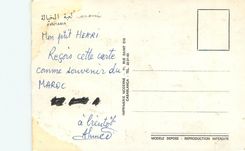 Mon p'tit HENRI
Reçois cette carte
comme souvenir du
MAROC
à bientôt
Ahmed
IMPRIMERIE MODERNE
CASABLANCA
MODELE DEPOSE - REPRODUCTION INTERDITE